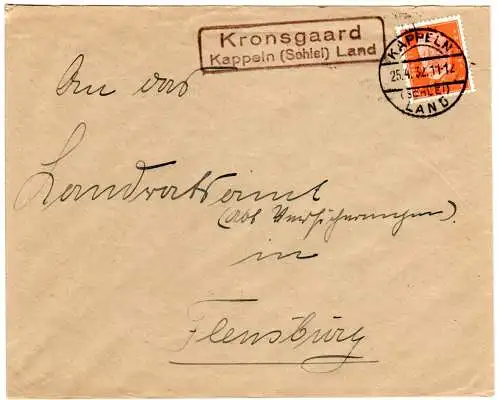 Kronsgaard
Kappeln (Schlei) Land
KAPPELN
25.4.32.11-12
(SCHLEI)
LAND
An das
Landratsamt
(Abt Versicherungen).
in
Flensburg